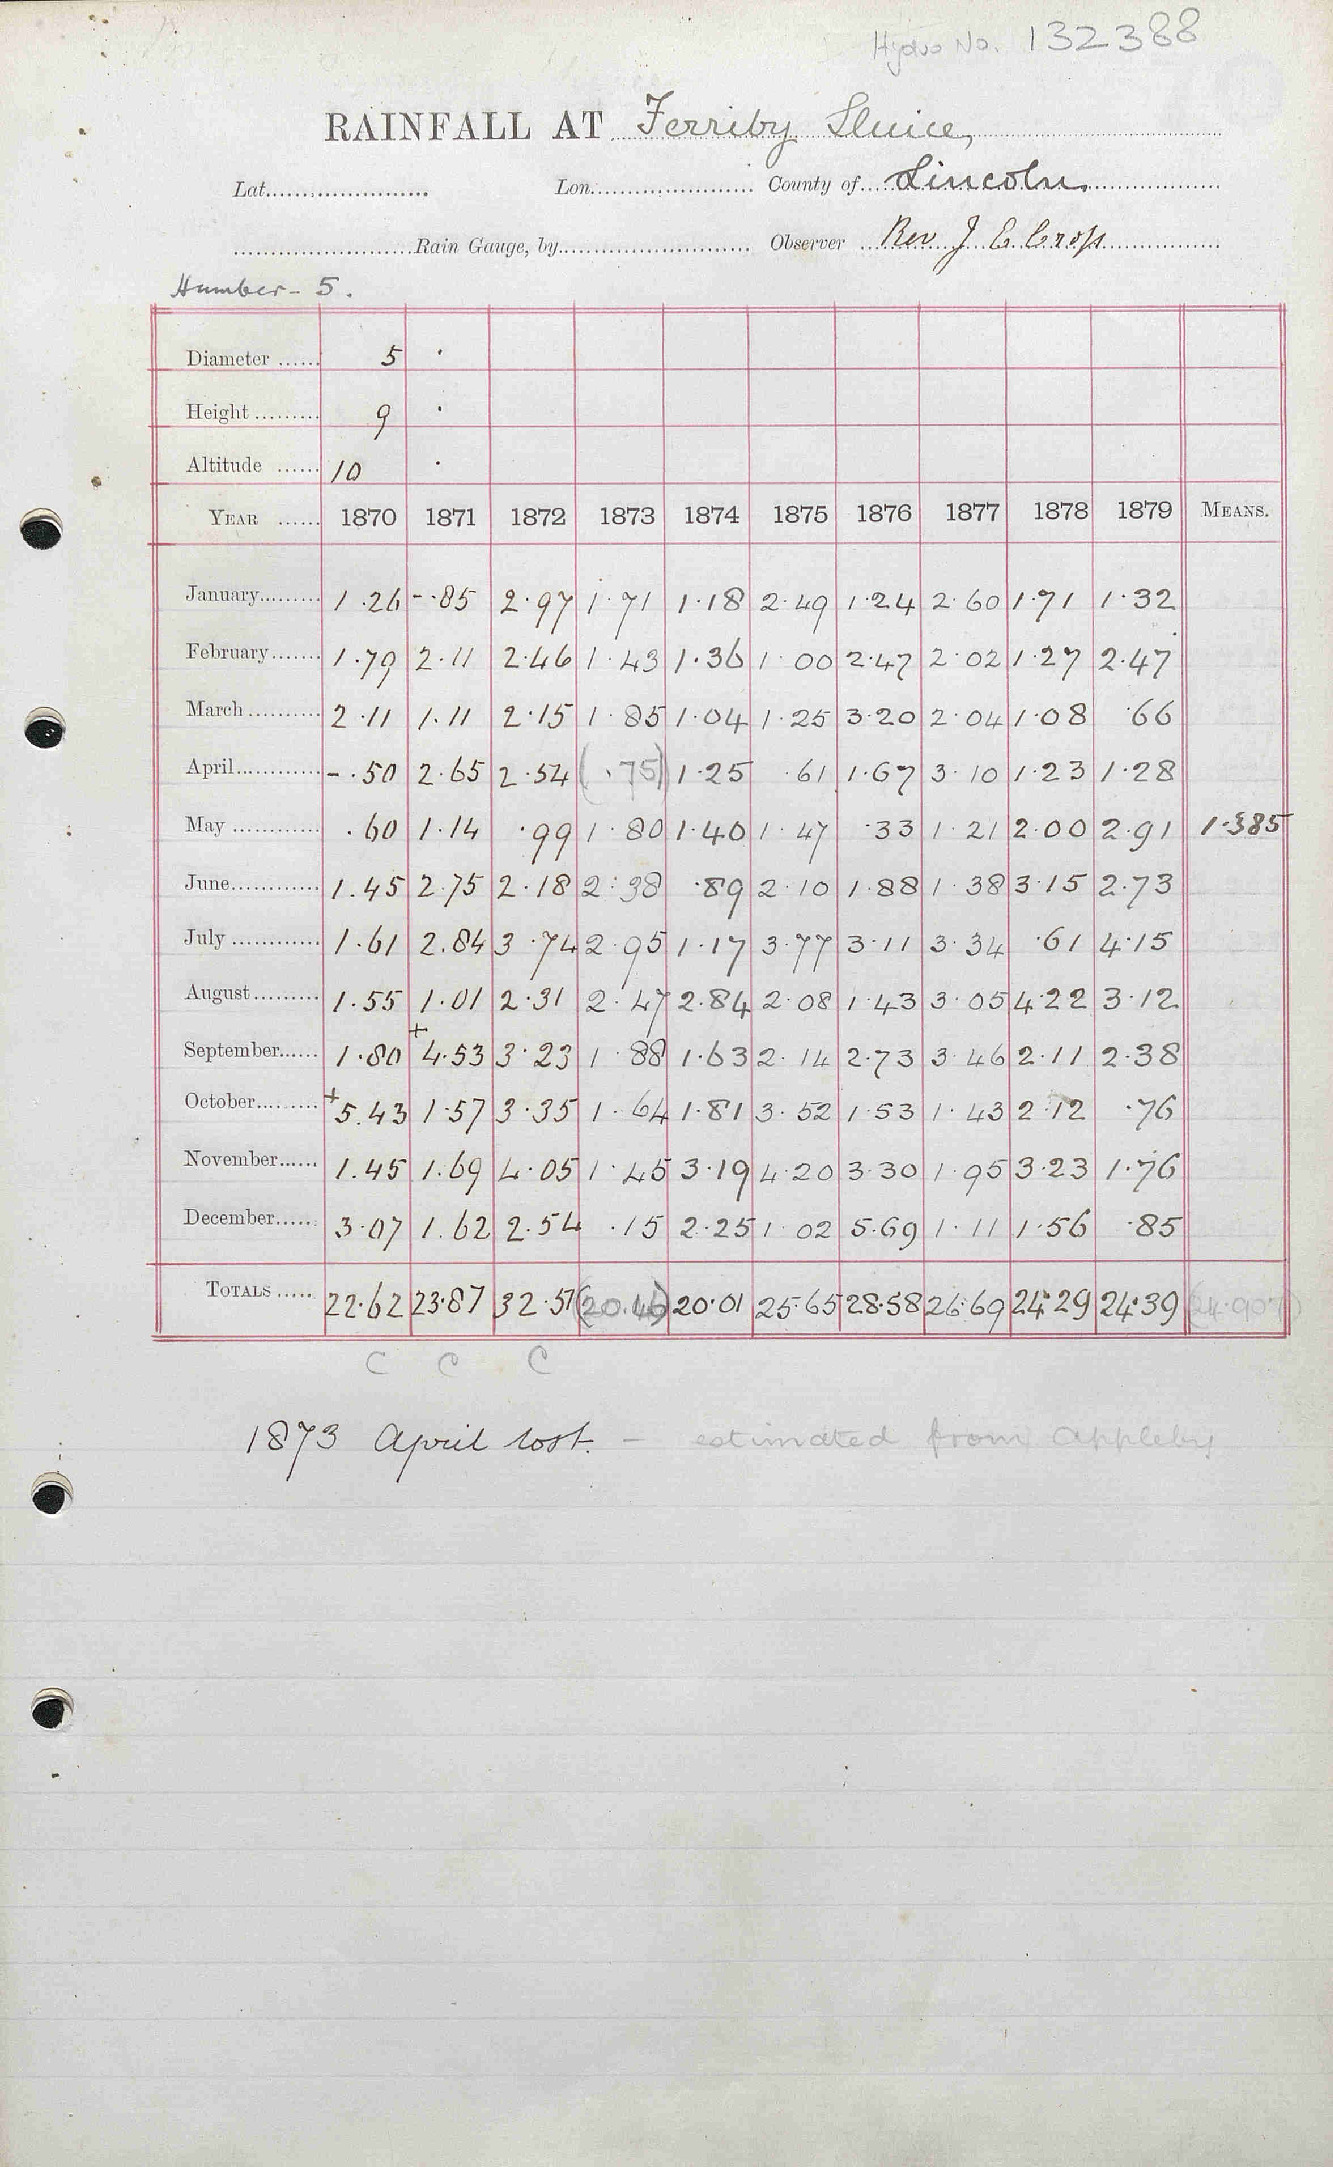 Hydro No. 132388
RAINFALL AT Ferriby Sluice,
Lat. Lon. County of Lincoln.
Rain Gauge, by Observer Rev J C Cross
Humber - 5.
Diameter 5 ·
Height 9 ·
Altitude 10 ·
YEAR 1870 1871 1872 1873 1874 1875 1876 1877 1878 1879 MEANS.
January 1.26 -.85 2.97 1.71 1.18 2.49 1.24 2.60 1.71 1.32
February 1.79 2.11 2.46 1.43 1.36 1.00 2.47 2.02 1.27 2.47
March 2.11 1.11 2.15 1.85 1.04 1.25 3.20 2.04 1.08 .66
April -.50 2.65 2.54 (.75) 1.25 .61 1.67 3.10 1.23 1.28
May .60 1.14 .99 1.80 1.40 1.47 .33 1.21 2.00 2.91 1.385
June 1.45 2.75 2.18 2.38 .89 2.10 1.88 1.38 3.15 2.73
July 1.61 2.84 3.74 2.95 1.17 3.77 3.11 3.34 .61 4.15
August 1.55 1.01 2.31 2.47 2.84 2.08 1.43 3.05 4.22 3.12
September 1.80 +4.53 3.23 1.88 1.63 2.14 2.73 3.46 2.11 2.38
October +5.43 1.57 3.35 1.64 1.81 3.52 1.53 1.43 2.12 .76
November 1.45 1.69 4.05 1.45 3.19 4.20 3.30 1.95 3.23 1.76
December 3.07 1.62 2.54 .15 2.25 1.02 5.69 1.11 1.56 .85
TOTALS 22.62 23.87 32.51 (20.46) 20.01 25.65 28.58 26.69 24.29 24.39 (24.907)
C C C
1873 April lost. - estimated from Appleby